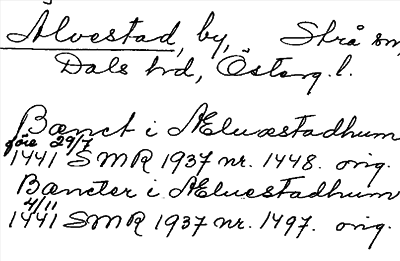 Älvestad, by, Strå sn,
Dals hd, Österg. l.
Bænct i Æluæstadhum
före 29/7
1441 SMR 1937 nr. 1448. orig.
Bæncter i Æluestadhum
4/11
1441 SMR 1937 nr. 1497. orig.